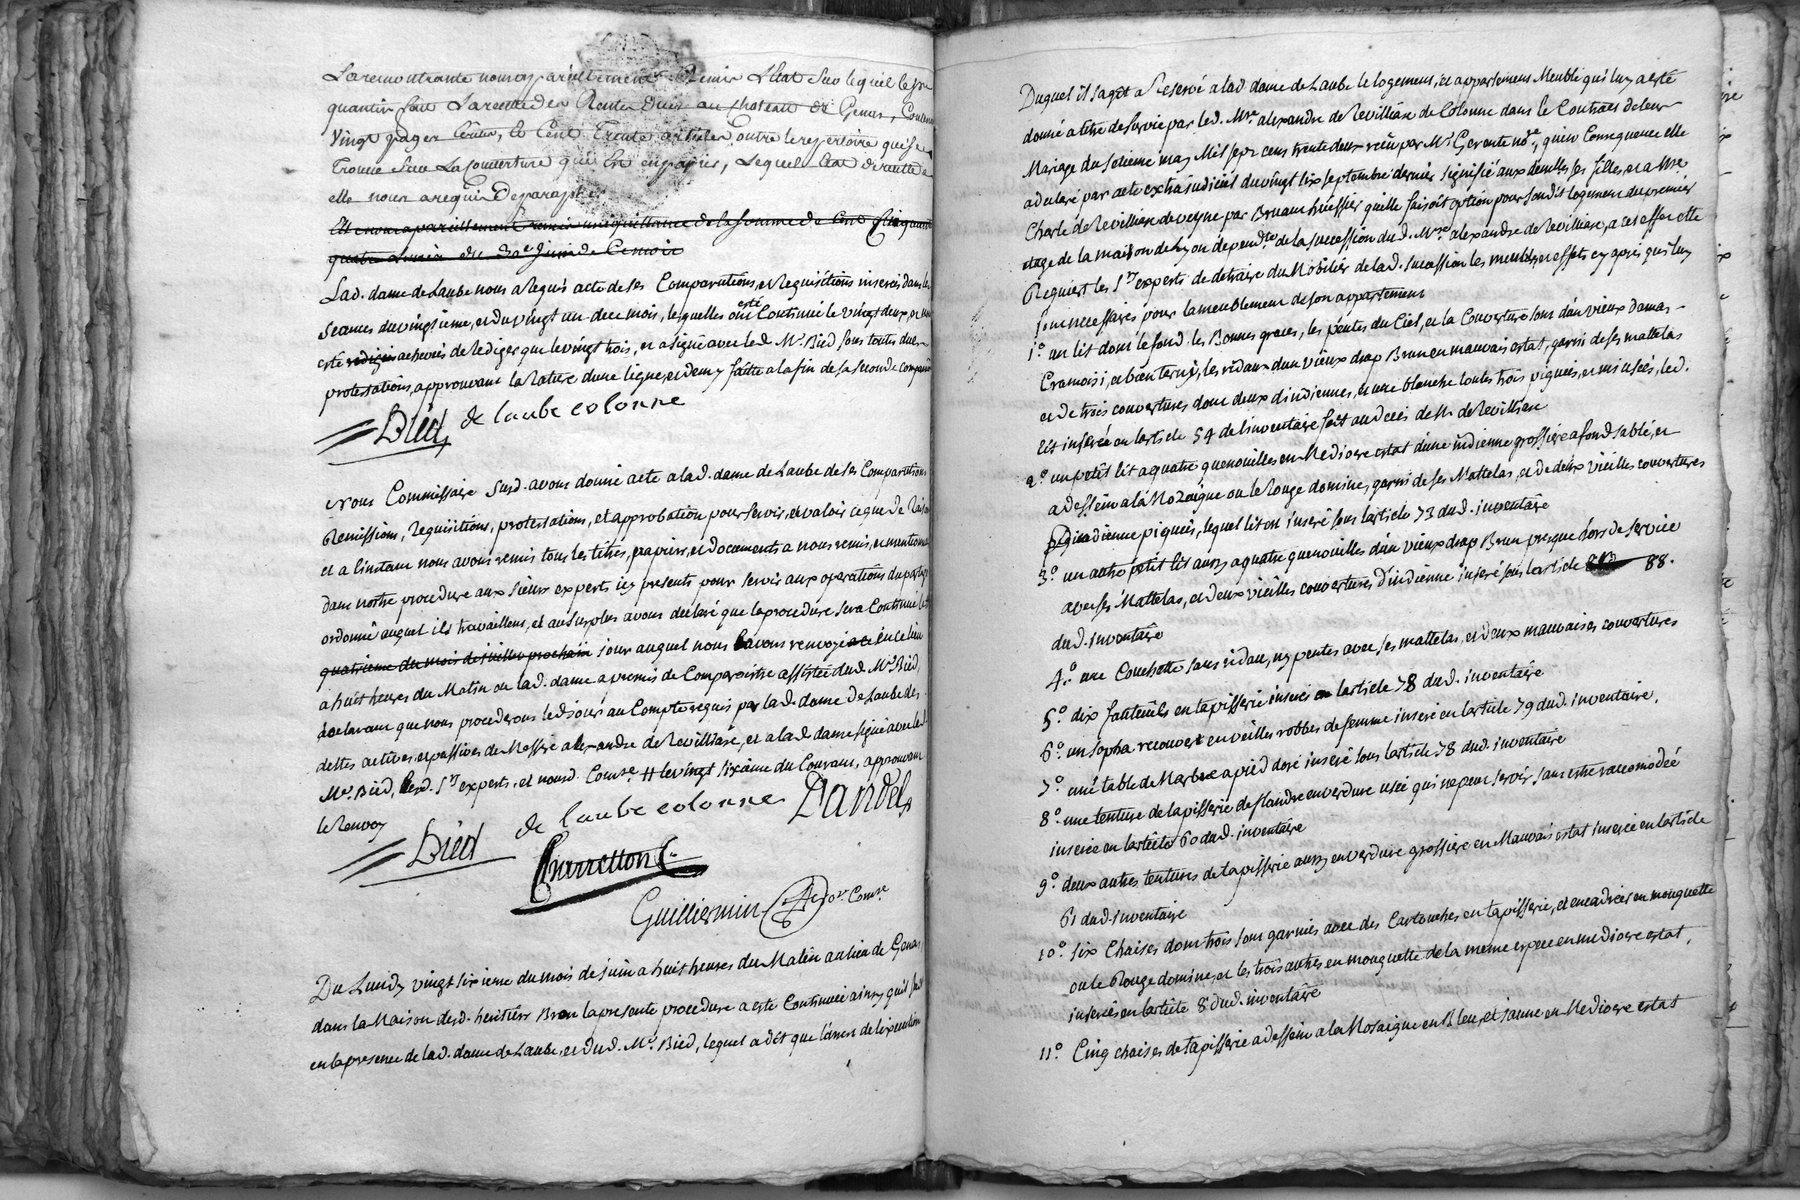 La remontrante nous a pareillement Remis L'Etat Sur lequel le Sr
quantin fait La recette des Rentes dues au chateau de Genas, Contenant
Vingt pages Ecrites, et Cent Trente articles outre le repertoire qui se
Trouve Sur La Couverture qui Est en papier, Lequel Etat
elle nous a requis De parapher
Et nous a pareillement Remis une quittance de la Somme de Cent Cinquante
quatre livres du 30e Juin de Ce mois
Lad. dame de Laube nous a Requis acte de ses Comparutions, et Requisitions inserées dans les
seances du vingtieme, et du vingt un de ce mois, lesquelles ont esté Continué le vingt deux, et nont
esté achevées de Rediger que le vingt trois, et a signé avec led. Me. Bied sous toutes dues
protestations, approuvant la Rature d'une ligne, et demy faitte a la fin de sa seconde comparution
Bied de laube colonne
Nous Commissaire susd. avons donné acte a lad. dame de Laube de ses Comparutions
Remissions, Requisitions, protestations, et approbation pour servir, et valoir ce que de Raison
et a l'instant nous avons remis tous les titres, papiers, et documents a nous remis, et mentionés
dans nostre procedure aux sieurs experts icy presents pour servir aux operations du partage
ordonné auquel ils travaillent, et au surplus avons declaré que la procedure sera Continuée le
quatrieme du mois de juillet prochain jour auquel nous l'avons renvoyé en ce lieu
a huit heures du Matin ou lad. dame a promis de Comparoitre assistée dud. Me. Bied,
declarant que nous procederons led. jour au Compte requis par lad. dame de Laube des
dettes actives, et passives de Messire alexandre de Revilliase, et a lad. dame signé avec led.
Me. Bied, lesd. Srs experts, et nousd. Comre # le vingt sixieme du Courant, approuvant
le Renvoy
Bied de laube colonne Dandel
Charretton
Guilliermin Comre.
Du Lundy vingt sixieme du mois de juin a huit heures du Matin au lieu de Genas
dans la Maison desd. heritiers Bron la presente procedure a esté Continuée ainsy quil suit
en la presence de lad. dame de Laube, et dud. Me. Bied, lequel a dit que lancs de lexecution
Duquel il s'agit a Reservé a lad. dame de Laube le logement, et appartement Meublé qui luy a esté
donné a titre de survie par led. Mre. alexandre de Revilliase de Colonne dans le Contract de leur
Mariage du seizieme may Mil sept cens trente deux reçu par Me. Gerente nore., qu'en Consequence elle
a declaré par acte extrajudiciel du vingt six septembre dernier signifié aux demlles ses filles, et a Mre.
Charle de Revilliase de veyne par Bruant huissier qu'elle faisoit option pour sondit logement du premier
etage de la maison de Lyon dependte. de la succession dud. Mre. alexandre de Revilliase, a cet effet elle
Requiert les Srs. experts de distraire du Mobilier de lad. succession les meubles, et effets cy apres qui luy
sont necessaires pour lameublement de son appartement
1°. un lit dont le fond, les Bonnes graces, les pentes du Ciel, et la Couverture sont d'un vieux damas
Cramoisi, et bien terny, les ridaux d'un vieux drap Brun en mauvais estat, garni de ses mattelas
et de trois couvertures dont deux d'indiennes, et une blanche toutes trois piquées, et mi usées, led.
lit inseré en larticle 54 de l'inventaire fait au deces de Mr. de Revilliase
2°. un petit lit a quatre quenouilles en Mediocre estat d'une indienne grossiere a fond sablé, et
a dessein a la Mozaïque ou le Rouge domine, garni de ses Mattelas, et de deux vieilles couvertures
d'indienne piquées, lequel lit est inseré sous larticle 73 dud. inventaire
3°. un autre petit lit aussy a quatre quenouilles d'un vieux drap Brun presque hors de service
avec ses Mattelas, et deux vieilles couvertures d'indienne inseré sous larticle 88.
dud. inventaire
4°. une Couchette sans ridau, ny pentes avec ses mattelas, et deux mauvaises couvertures
5°. dix fauteüils en tapisserie inserés en larticle 78 dud. inventaire
6°. un sopha recouvert en vieilles robbes de femme inseré en larticle 79 dud. inventaire.
7°. une table de Marbre a pied doré inseré sous larticle 78 dud. inventaire
8°. une tenture de tapisserie de flandre en verdure usée qui ne peut servir sans estre racomodée
inserée en larticle 60 dud. inventaire
9°. deux autres tentures de tapisserie aussy en verdure grossiere en Mauvais estat inserée en larticle
61 dud. inventaire
10°. six Chaises dont trois sont garnies avec des Cartouches en tapisserie, et encadrées en mouquette
ou le Rouge domine, et les trois autres en mouquette de la meme espece en mediocre estat,
inserées en larticle 8 dud. inventaire
11°. Cinq chaises de tapisserie a dessein a la Mosaique en Bleu, et jaune en Mediocre estat